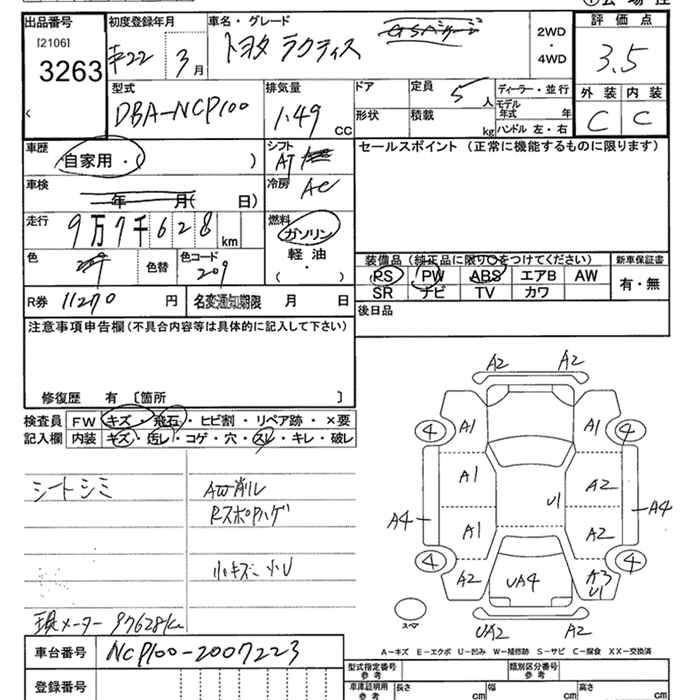 出品番号
[2106]
3263
初度登録年月
平22 3月
車名・グレード
トヨタ ラクティス
2WD
・
4WD
評価点
3.5
外装 内装
C C
型式
DBA-NCP100
排気量
1.49 CC
ドア
形状
定員 5人
積載 kg
ディーラー・並行
モデル年式 年
ハンドル 左・右
車歴
自家用・( )
シフト
AT
冷房
AC
セールスポイント (正常に機能するものに限ります)
車検
年 月( 日)
走行
9万7千628km
燃料
ガソリン
軽油
( ・ )
色
209
色替
色コード
209
装備品(純正品に限り○をつけてください)
PS PW ABS エアB AW
SR ナビ TV カワ
新車保証書
有・無
R券 11270 円
名変通知期限 月 日
後日品
注意事項申告欄(不具合内容等は具体的に記入して下さい)
修復歴 有 〔箇所 〕
検査員記入欄
FW キズ・飛石・ヒビ割・リペア跡・×要
内装 キズ・汚レ・コゲ・穴・スレ・キレ・破レ
シートシミ
AW削ル
Rスポハゲ
小キズ、小U
現メーター 97628km
A2 A2
4 A1 A1 4
A1 U1 A2
A4 A4
A1 A2
4 A2 UA4 A3 U1 4
スペア
UA2 A2
A-キズ E-エクボ U-凹み W-補修跡 S-サビ C-腐食 XX-交換済
車台番号 NCP100-2007223
登録番号
型式指定番号 参考
類別区分番号 参考
車庫証明用 参考
長さ cm
幅 cm
高さ cm